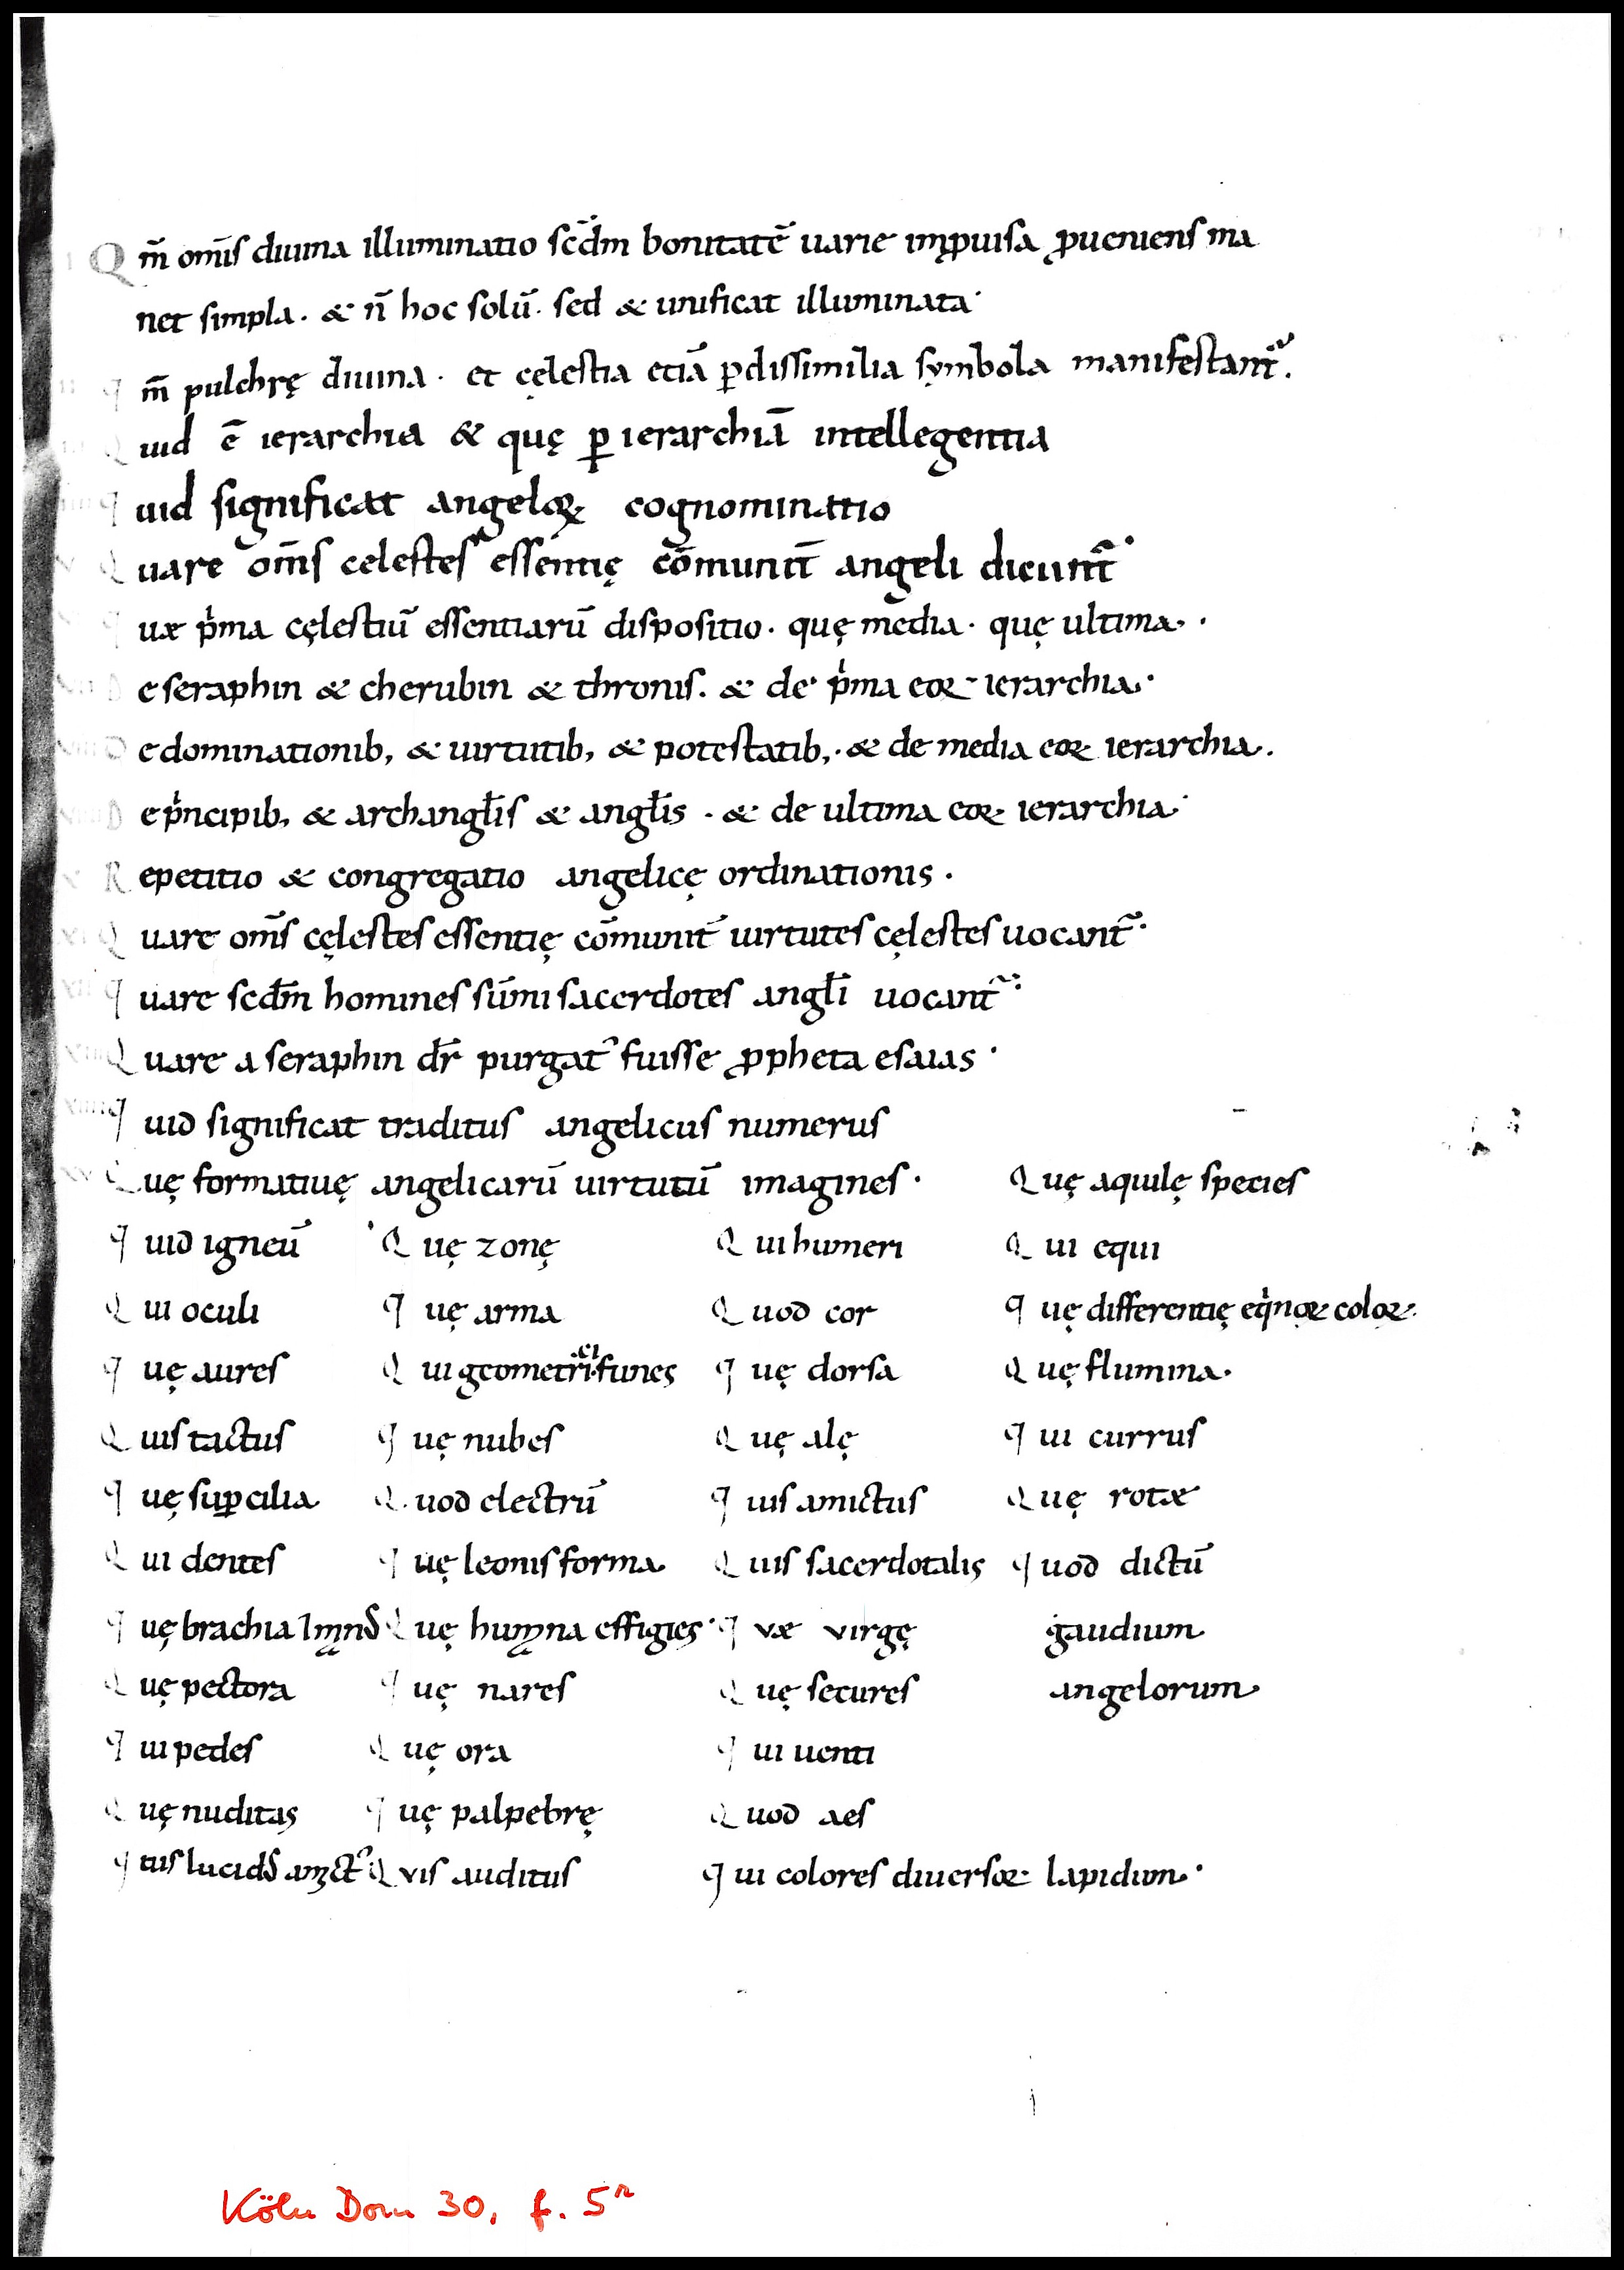 I Qm̄ om̄is diuina illuminatio sc̄dm bonitatē uarie in ꝓuisa ꝓueniens ma
net simpla. & n̄ hoc solū. sed & unificat illuminata.
II qm̄ pulchrę diuina. et cęlestia etiā ꝑdissimilia symbola manifestant᷑.
III Quid ē ierarchia & quę ꝑ ierarchiā intellegentia
IIII quid significat angeloꝝ cognominatio
V Quare om̄s celestes essentię cōmunit̄ angeli dicunt᷑.
VI quæ pͥma cęlestiū essentiarū dispositio. quę media. quę ultima.
VII De seraphin & cherubin & thronis. & de pͥma eoꝝ ierarchia.
VIII De dominationib; & uirtutib; & potestatib;. & de media eoꝝ ierarchia.
VIIII De pͥncipib; & archangl̄is & angl̄is. & de ultima eoꝝ ierarchia.
X Repetitio & congregatio angelicę ordinationis.
XI Quare om̄s cęlestes essentię cōmunit̄ uirtutes cęlestes uocant᷑.
XII quare scdm̄ homines sūmi sacerdotes angl̄i uocant᷑.
XIII Quare a seraphin dr̄ purgatꝰ fuisse ꝓpheta esaias.
XIIII quid significat traditus angelicus numerus
XV Quę formatiuę angelicarū uirtutū imagines. Quę aquilę species
quid igneū Quę zonę Qui humeri Qui equi
Qui oculi quę arma Quod cor quę differentię eqͥnoꝝ coloꝝ.
quę aures Qui geometri.ci.funes quę dorsa Quę flumina.
Quis tactus quę nubes Quę alę qui currus
quę suꝑcilia Quod electrū quis amictus Quę rotæ
Qui dentes quę leonis forma Quis sacerdotalis quod dictū
quę brachia Quę humana effigies. quæ virgę gaudium
Quę pectora quę nares Quę secures angelorum
qui pedes Quę ora qui uenti
Quę nuditas quę palpebrę Quod aes
Quis auditus qui colores diuersoꝝ lapidum.
Köln Dom 30, f. 5r